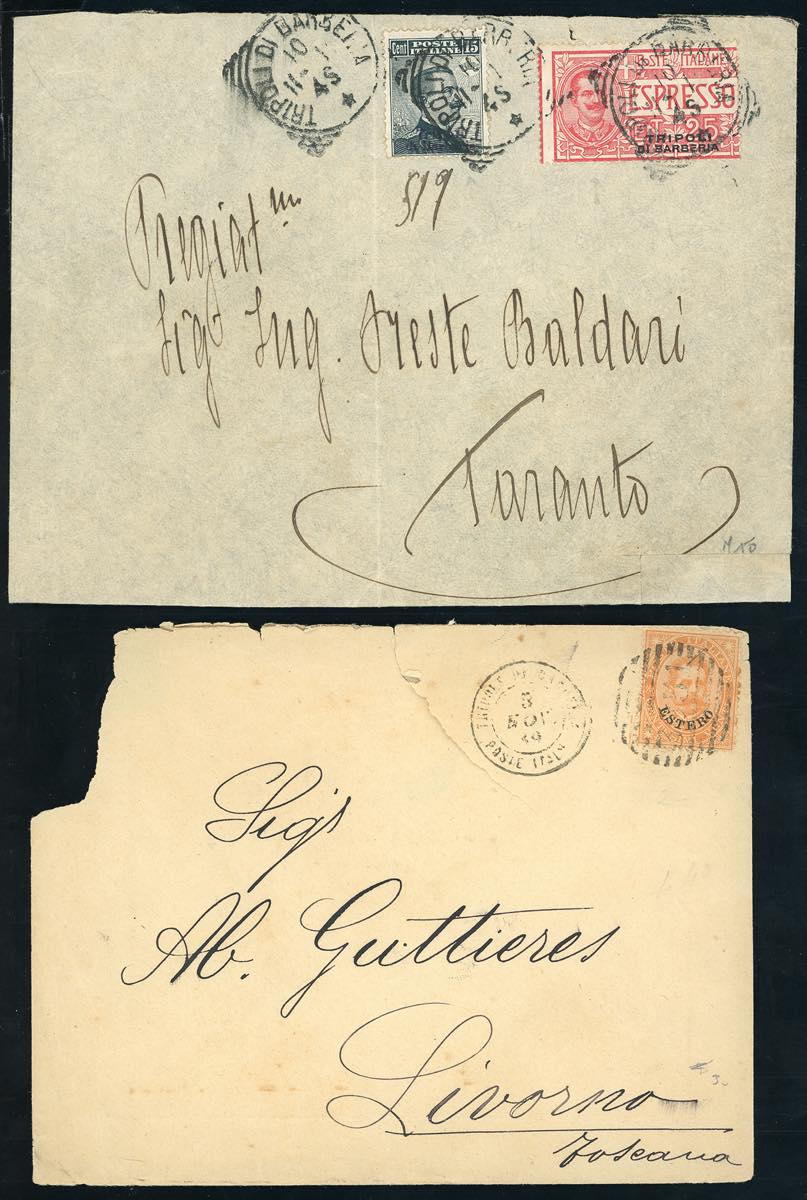 TRIPOLI DI BARBERIA
10
11
4S
POSTE ITALIANE
Cent 15
TRIPOLI DI BARBERIA
4S
POSTE ITALIANE
ESPRESSO
25
TRIPOLI
DI BARBERIA
519
Pregiatmo
Sigr Ing. Oreste Baldari
Taranto
TRIPOLI DI
3
NOV
POSTE ITAL
ESTERO
Sigr
Ab. Guttieres
Livorno
Toscana